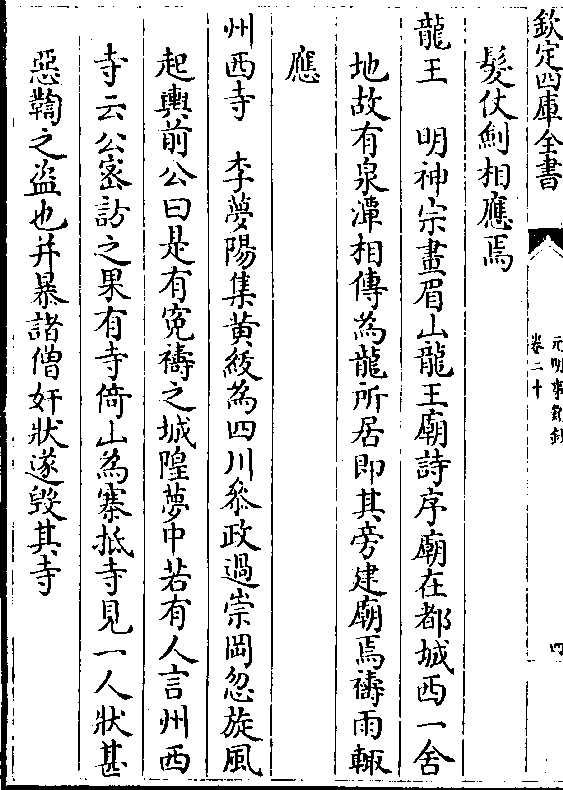 欽定四庫全書
元明事類鈔
卷二十
四
髮仗劍相應焉
龍王　明神宗畫眉山龍王廟詩序廟在都城西一舍
地故有泉潭相傳為龍所居即其旁建廟焉禱雨輒
應
州西寺　李夢陽集黃紱為四川叅政過崇岡忽旋風
起輿前公曰是有寃禱之城隍夢中若有人言州西
寺云公密訪之果有寺倚山為寨抵寺見一人狀甚
惡鞫之盜也并暴諸僧奸狀遂毀其寺